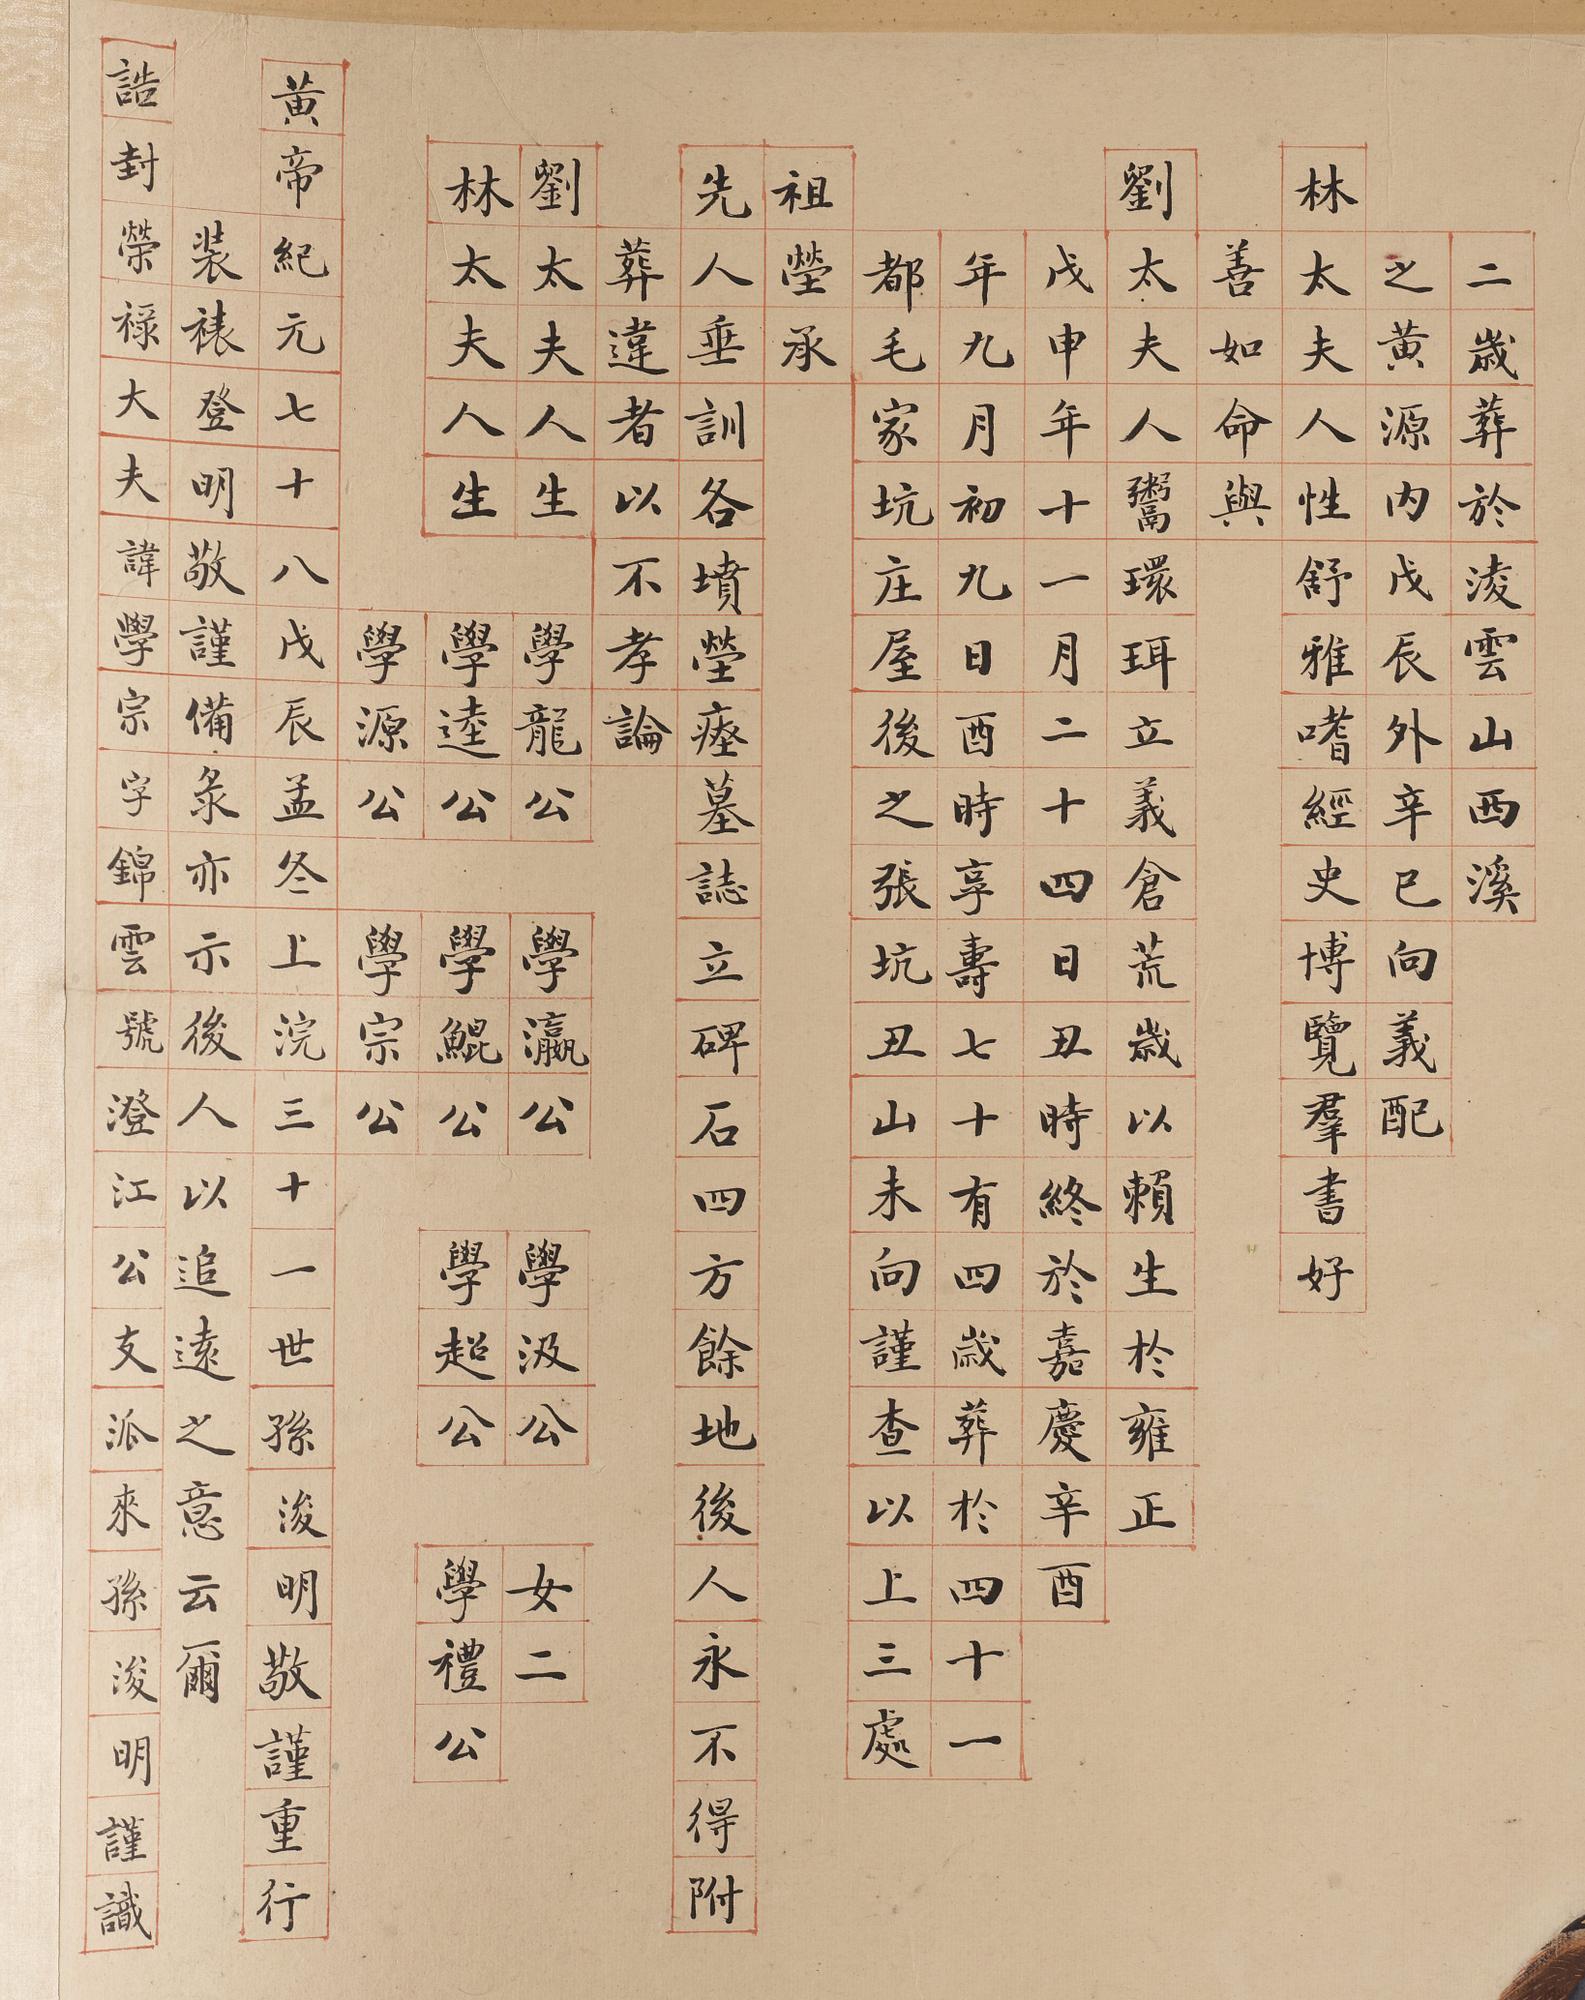 二歲葬於淩雲山西溪
之黃源内戊辰外辛巳向義配
林太夫人性舒雅嗜經史博覽羣書好
善如命與
劉太夫人鬻環珥立義倉荒歲以賴生於雍正
戊申年十一月二十四日丑時終於嘉慶辛酉
年九月初九日酉時享壽七十有四歲葬於四十一
都毛家坑庄屋後之張坑丑山未向謹查以上三處
祖塋承
先人垂訓各墳塋瘞墓誌立碑石四方餘地後人永不得附
葬違者以不孝論
劉太夫人生 學龍公 學瀛公 學汲公 女二
林太夫人生 學逵公 學鯤公 學超公 學禮公
學源公 學宗公
黃帝紀元七十八戊辰孟冬上浣三十一世孫浚明敬謹重行
裝裱登明敬謹備彔亦示後人以追遠之意云爾
誥封榮祿大夫諱學宗字錦雲號澄江公支派來孫浚明謹識